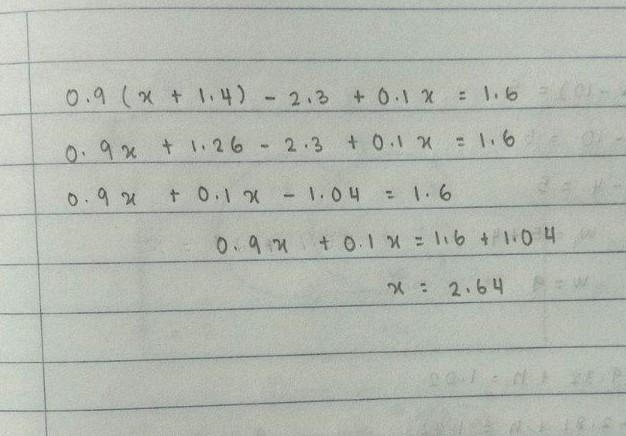 0.9 (x + 1.4) - 2.3 + 0.1 x = 1.6
0.9x + 1.26 - 2.3 + 0.1 x = 1.6
0.9x + 0.1x - 1.04 = 1.6
0.9x + 0.1x = 1.6 + 1.04
x = 2.64